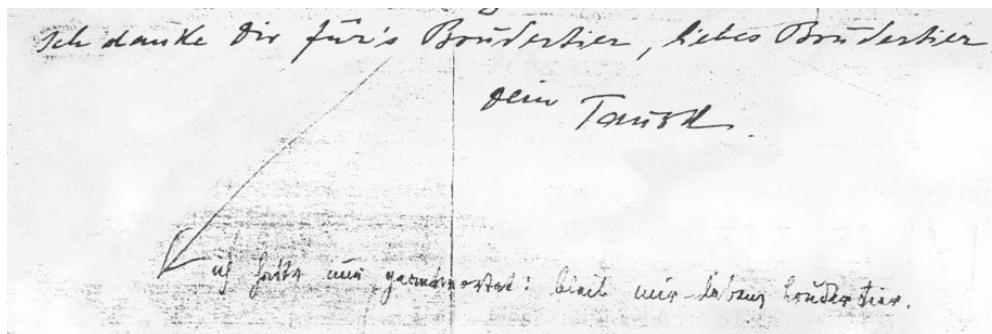 Ich danke Dir für's Brudertier, liebes Brudertier.
Dein Tausk.
ich hätte nur geantwortet: bleib mir brudertier.